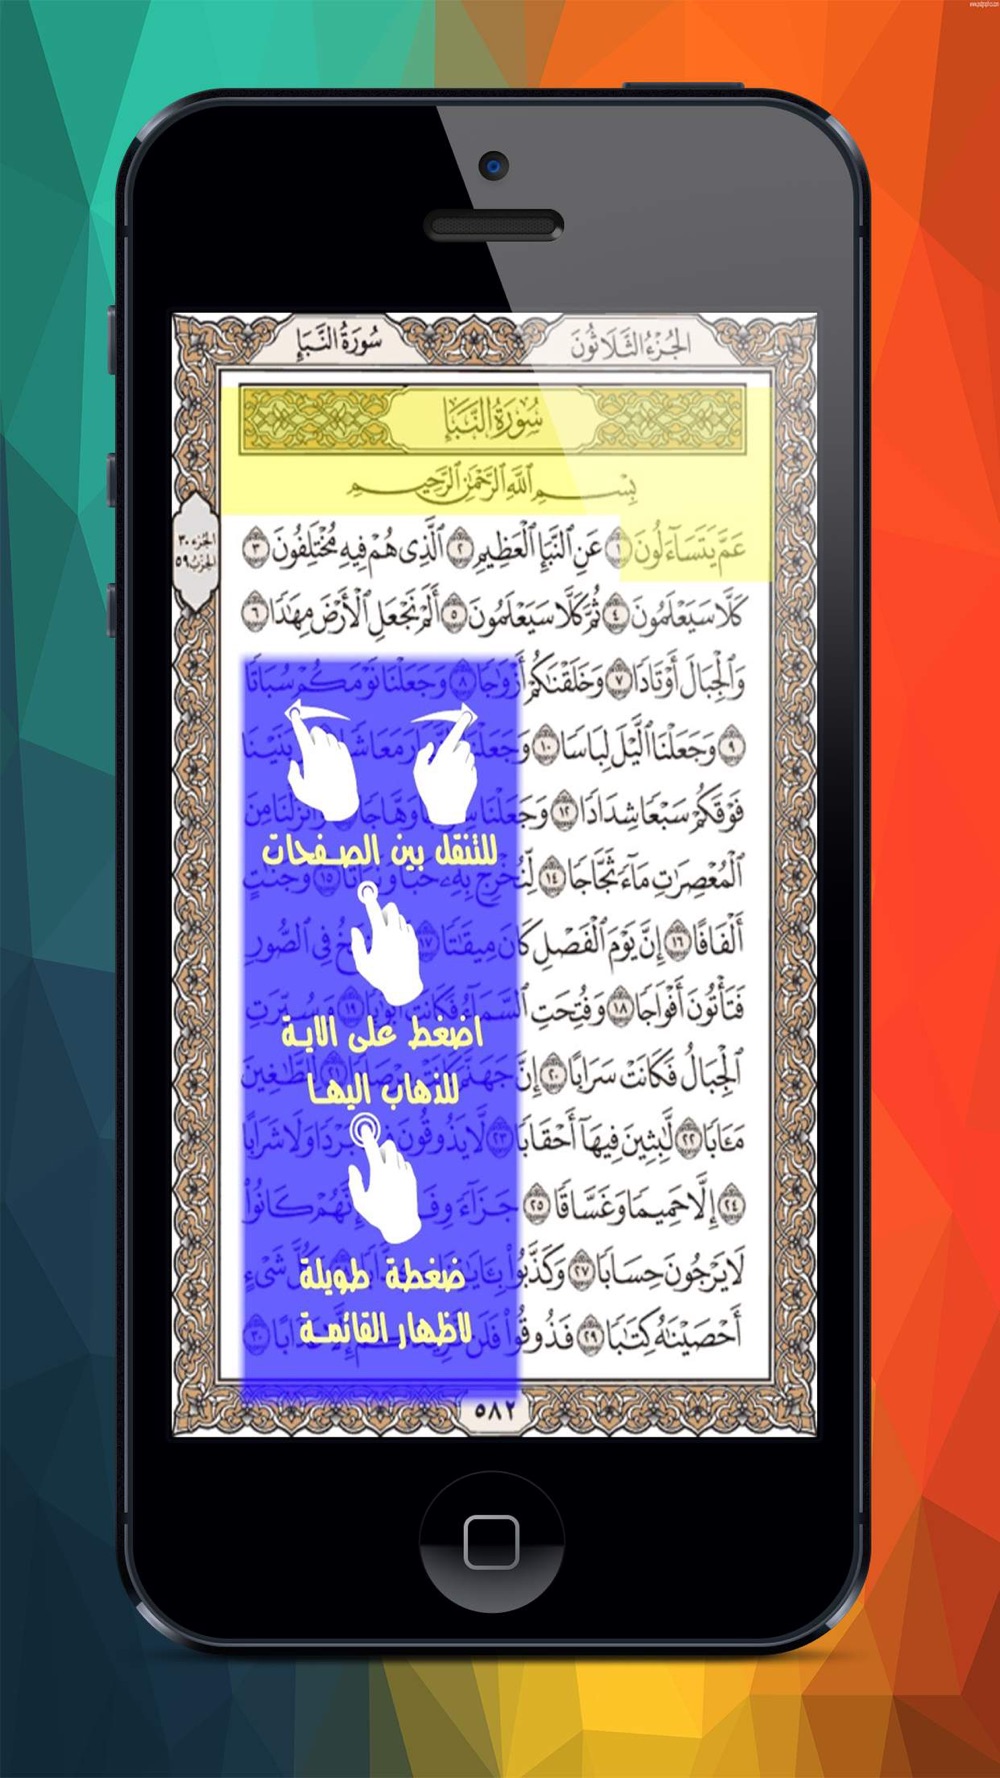 سُورَةُ النَّبَإِ الجُزْءُ الثَّلَاثُونَ
سُورَةُ النَّبَإِ
بِسْمِ ٱللَّهِ ٱلرَّحْمَٰنِ ٱلرَّحِيمِ
عَمَّ يَتَسَآءَلُونَ ١ عَنِ ٱلنَّبَإِ ٱلْعَظِيمِ ٢ ٱلَّذِى هُمْ فِيهِ مُخْتَلِفُونَ ٣
كَلَّا سَيَعْلَمُونَ ٤ ثُمَّ كَلَّا سَيَعْلَمُونَ ٥ أَلَمْ نَجْعَلِ ٱلْأَرْضَ مِهَٰدًا ٦
وَٱلْجِبَالَ أَوْتَادًا ٧ وَخَلَقْنَٰكُمْ أَزْوَٰجًا ٨ وَجَعَلْنَا نَوْمَكُمْ سُبَاتًا
٩ وَجَعَلْنَا ٱلَّيْلَ لِبَاسًا ١٠ وَجَعَلْنَا مَعَاشًا وَبَنَيْنَا
فَوْقَكُمْ سَبْعًا شِدَادًا ١٢ وَجَعَلْنَا وَهَّاجًا وَأَنزَلْنَا مِنَ
ٱلْمُعْصِرَٰتِ مَآءً ثَجَّاجًا ١٤ لِّنُخْرِجَ بِهِۦ حَبًّا وَنَبَاتًا ١٥ وَجَنَّٰتٍ
أَلْفَافًا ١٦ إِنَّ يَوْمَ ٱلْفَصْلِ كَانَ مِيقَٰتًا ١٧ فِى ٱلصُّورِ
فَتَأْتُونَ أَفْوَاجًا ١٨ وَفُتِحَتِ ٱلسَّمَآءُ فَكَانَتْ أَبْوَٰبًا ١٩ وَسُيِّرَتِ
ٱلْجِبَالُ فَكَانَتْ سَرَابًا ٢٠ إِنَّ جَهَنَّمَ كَانَتْ مِرْصَادًا ٢١ لِّلطَّٰغِينَ
مَـَٔابًا ٢٢ لَّٰبِثِينَ فِيهَآ أَحْقَابًا ٢٣ لَّا يَذُوقُونَ بَرْدًا وَلَا شَرَابًا
٢٤ إِلَّا حَمِيمًا وَغَسَّاقًا ٢٥ جَزَآءً إِنَّهُمْ كَانُوا۟
لَا يَرْجُونَ حِسَابًا ٢٧ وَكَذَّبُوا۟ بِـَٔايَٰتِنَا شَىْءٍ
أَحْصَيْنَٰهُ كِتَٰبًا ٢٩ فَذُوقُوا۟ فَلَن إِلَّا عَذَابًا ٣٠
الجزء ٣٠
الحزب ٥٩
للتنقل بين الصفحات
اضغط على الاية
للذهاب اليها
ضغطة طويلة
لاظهار القائمة
٥٨٢